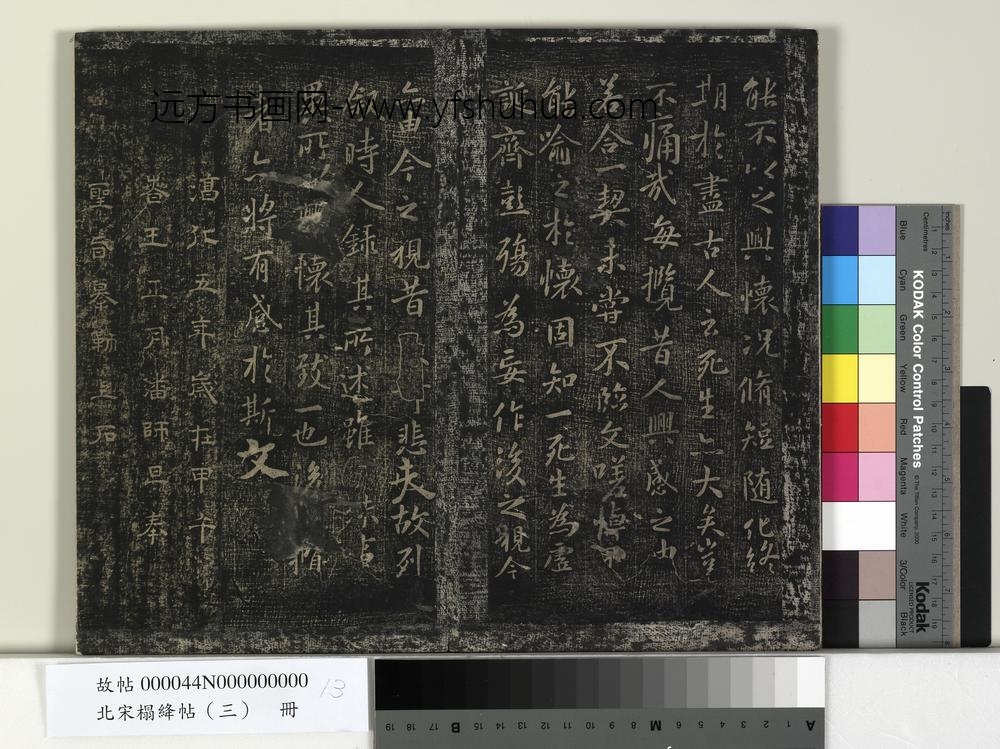 能不以之興懷况脩短隨化終
期於盡古人云死生亦大矣豈
不痛哉每攬昔人興感之由
若合一契未嘗不臨文嗟悼不
能喻之於懷固知一死生為虛
誕齊彭殤為妄作後之視今
亦由今之視昔悲夫故列
敘時人錄其所述雖
異所以興懷其致一也後攬
者亦將有感於斯文
淳化五年歲在甲午
春王正月潘師旦奉
聖旨摹勒上石
远方书画网-www.yfshuhua.com
故帖 000044N000000000
13
北宋榻絳帖（三） 冊
KODAK Color Control Patches
© The Tiffen Company, 2000
Kodak
LICENSED PRODUCT
Blue
Cyan
Green
Yellow
Red
Magenta
White
3/Color
Black
Inches
Centimetres
A 1 2 3 4 5 6 M 8 9 10 11 12 13 14 15 B 17 18 19